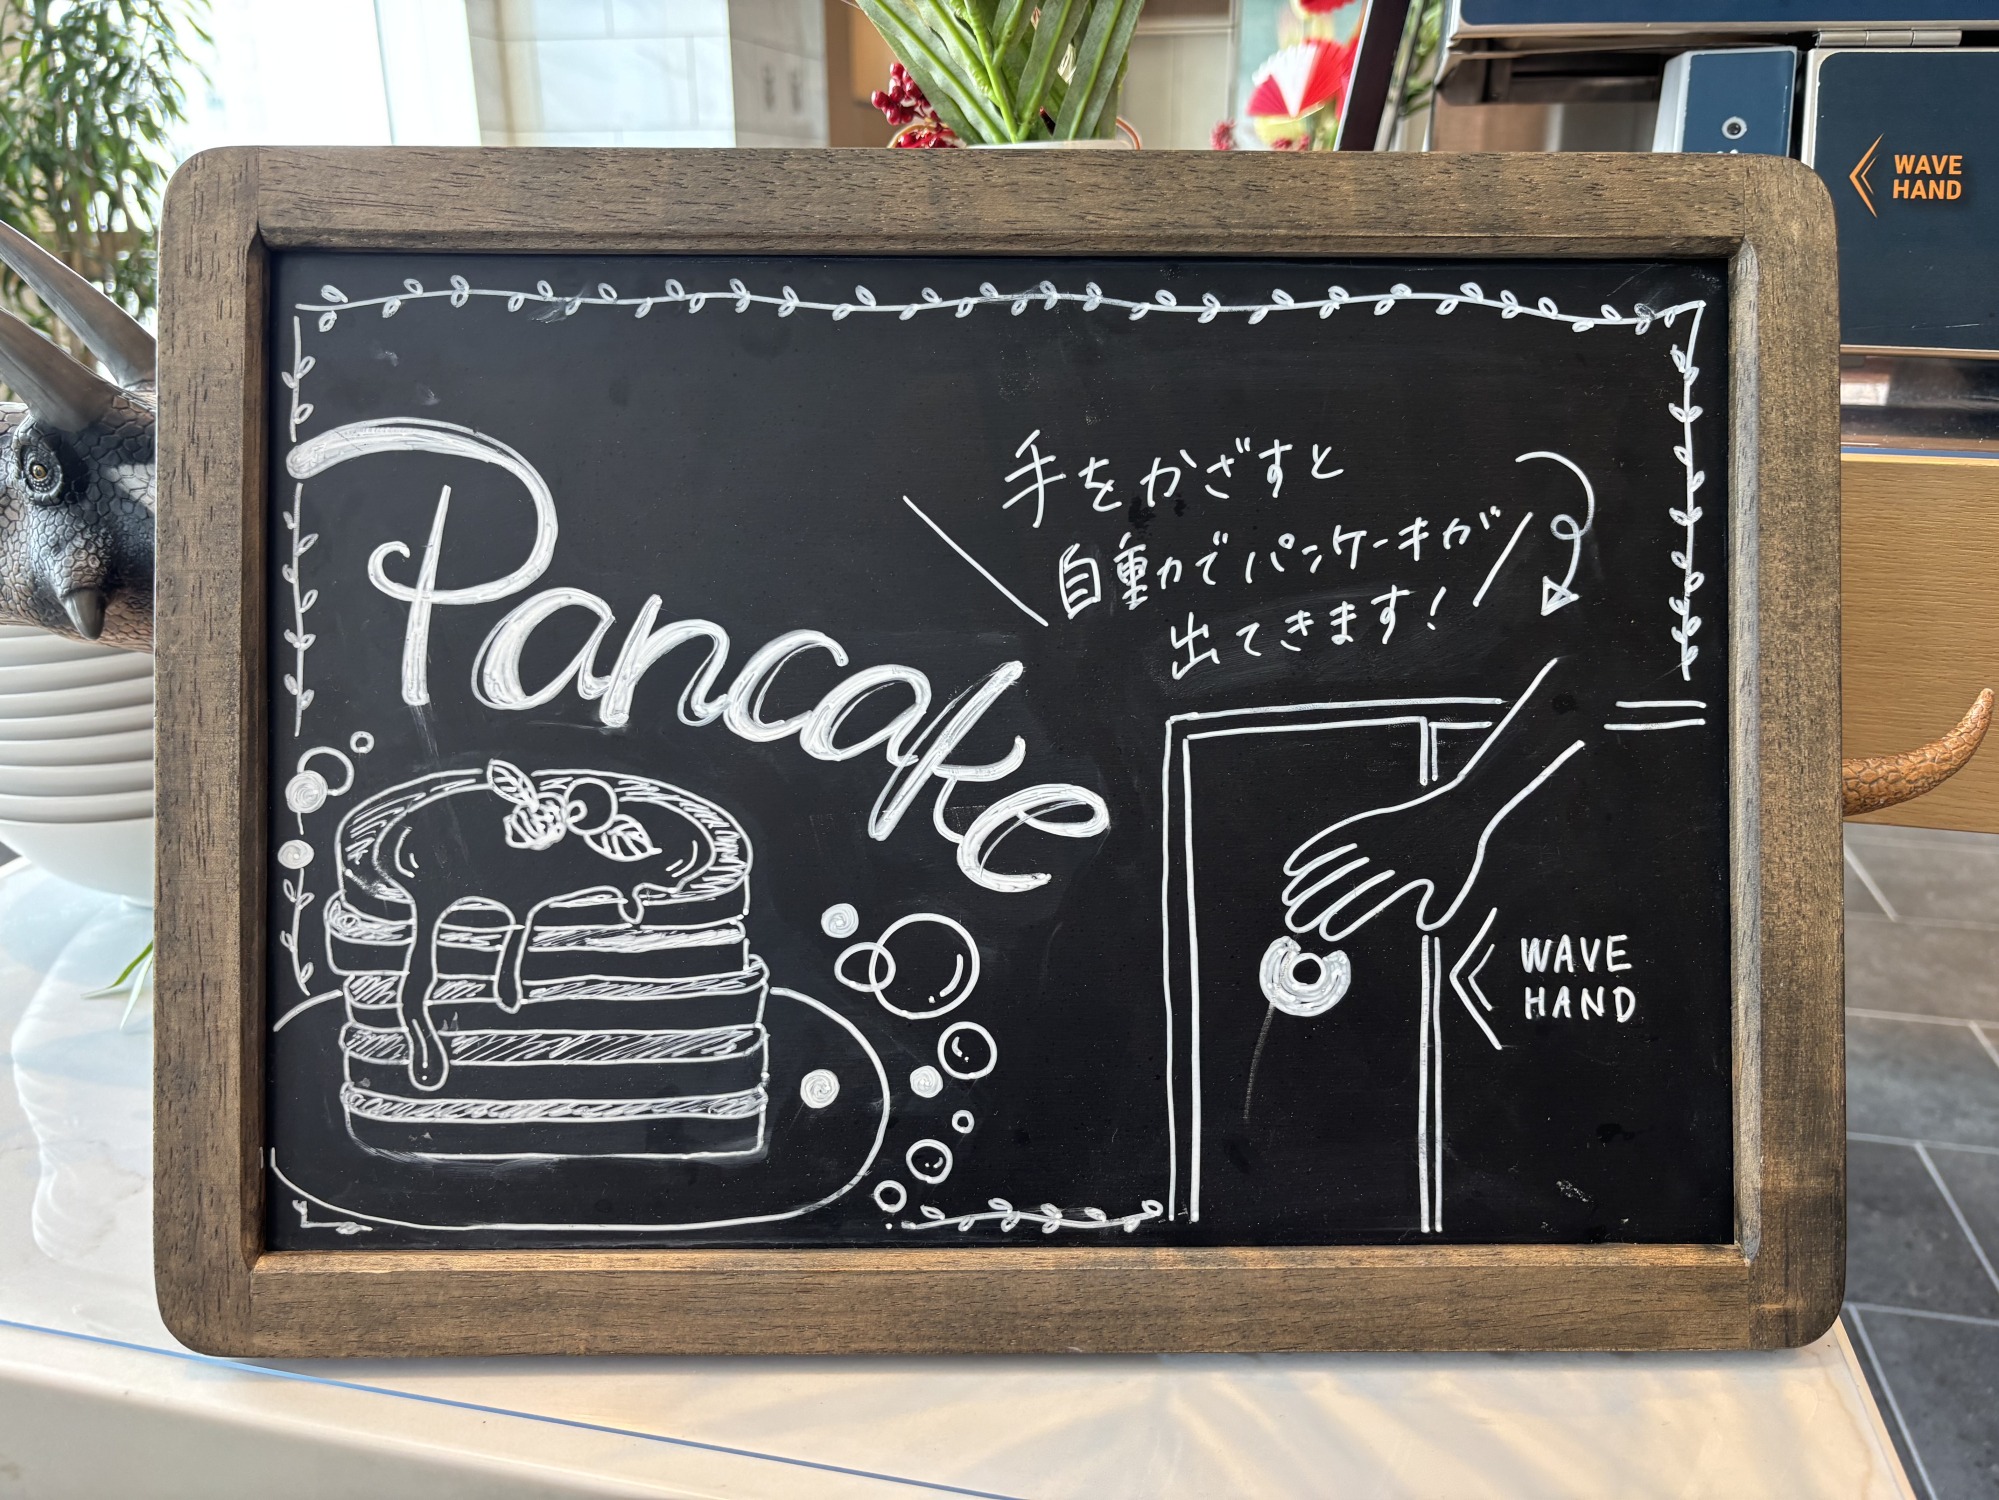 WAVE
HAND
Pancake
手をかざすと
自動でパンケーキが
出てきます!
WAVE
HAND